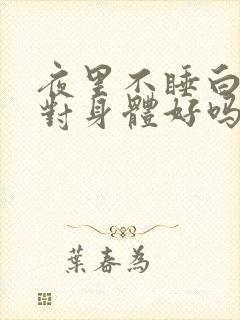 夜里不睡白
對身體好吗
葉春為